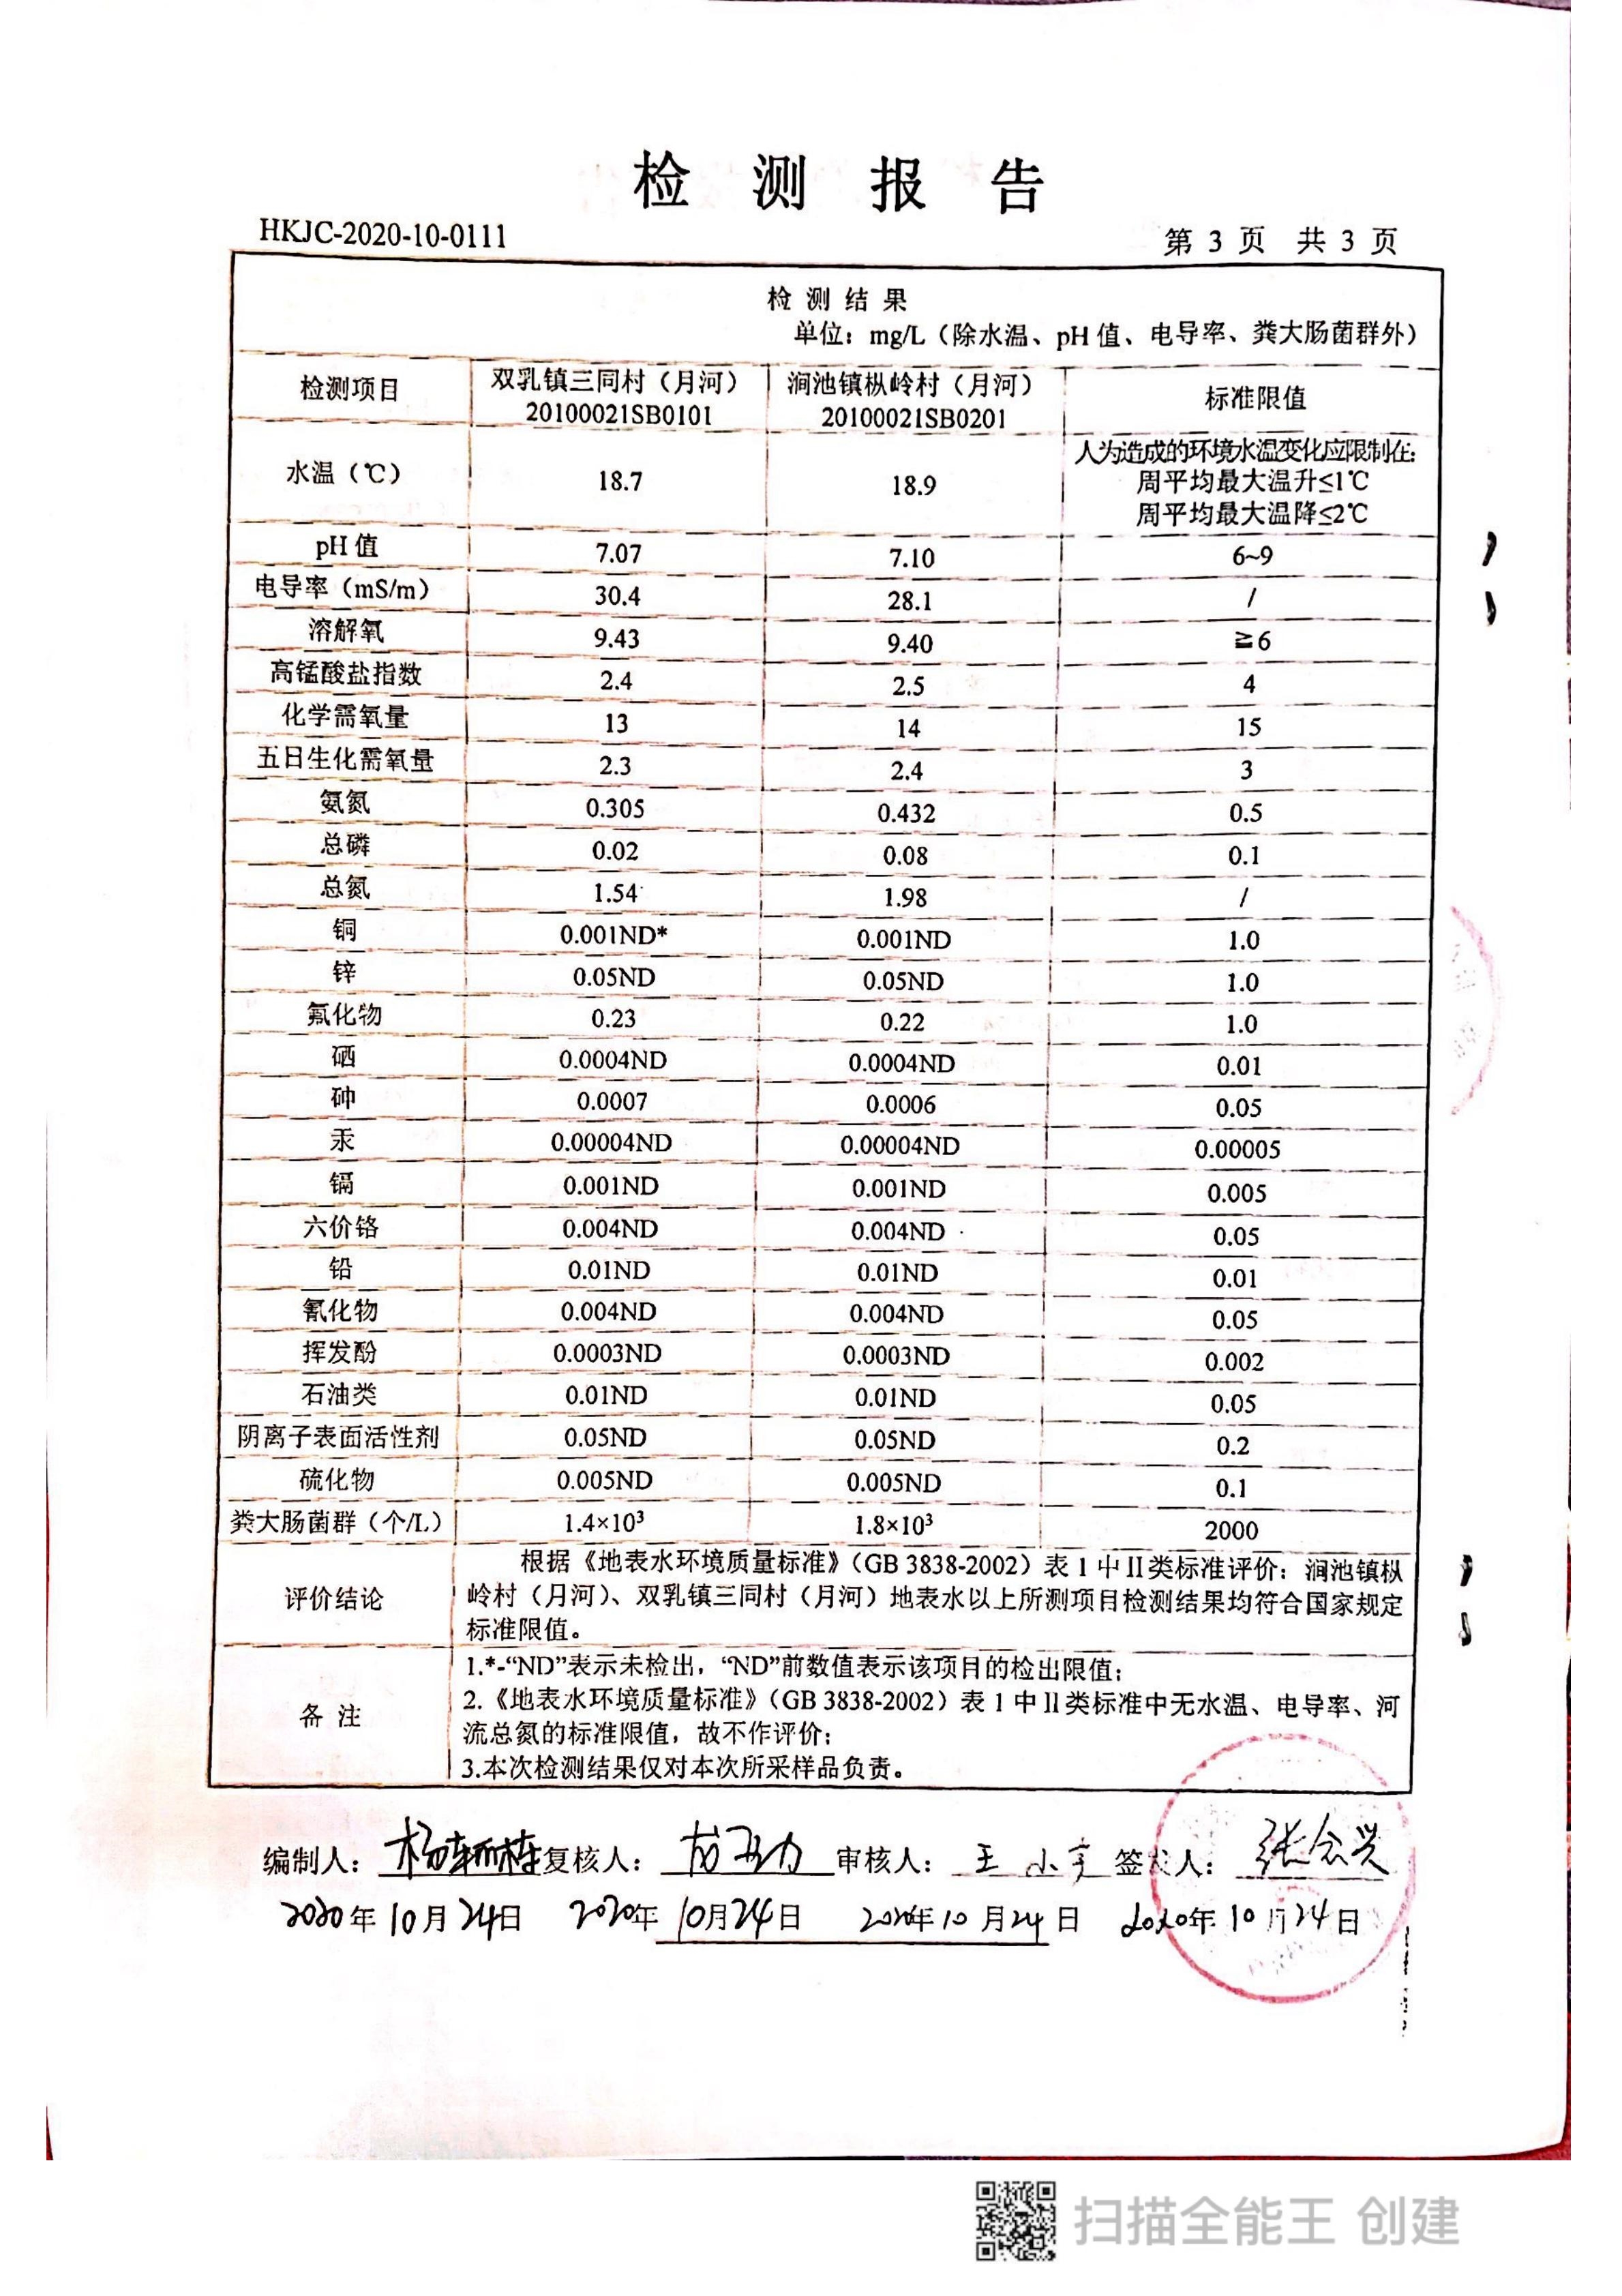 检测报告
HKJC-2020-10-0111
第 3 页 共 3 页
检测结果
单位：mg/L（除水温、pH 值、电导率、粪大肠菌群外）
检测项目 双乳镇三同村（月河） 20100021SB0101 涧池镇枞岭村（月河） 20100021SB0201 标准限值
水温（℃） 18.7 18.9 人为造成的环境水温变化应限制在：
周平均最大温升≤1℃
周平均最大温降≤2℃
pH 值 7.07 7.10 6~9
电导率（mS/m） 30.4 28.1 /
溶解氧 9.43 9.40 ≧6
高锰酸盐指数 2.4 2.5 4
化学需氧量 13 14 15
五日生化需氧量 2.3 2.4 3
氨氮 0.305 0.432 0.5
总磷 0.02 0.08 0.1
总氮 1.54 1.98 /
铜 0.001ND* 0.001ND 1.0
锌 0.05ND 0.05ND 1.0
氟化物 0.23 0.22 1.0
硒 0.0004ND 0.0004ND 0.01
砷 0.0007 0.0006 0.05
汞 0.00004ND 0.00004ND 0.00005
镉 0.001ND 0.001ND 0.005
六价铬 0.004ND 0.004ND 0.05
铅 0.01ND 0.01ND 0.01
氰化物 0.004ND 0.004ND 0.05
挥发酚 0.0003ND 0.0003ND 0.002
石油类 0.01ND 0.01ND 0.05
阴离子表面活性剂 0.05ND 0.05ND 0.2
硫化物 0.005ND 0.005ND 0.1
粪大肠菌群（个/L） 1.4×10³ 1.8×10³ 2000
评价结论
根据《地表水环境质量标准》（GB 3838-2002）表 1 中 II 类标准评价：涧池镇枞
岭村（月河）、双乳镇三同村（月河）地表水以上所测项目检测结果均符合国家规定
标准限值。
备 注
1.*-“ND”表示未检出，“ND”前数值表示该项目的检出限值；
2.《地表水环境质量标准》（GB 3838-2002）表 1 中 II 类标准中无水温、电导率、河
流总氮的标准限值，故不作评价；
3.本次检测结果仅对本次所采样品负责。
编制人： 复核人： 审核人：王小宁 签发人：张念兴
2020年10月24日 2020年10月24日 2020年10月24日 2020年10月24日
扫描全能王 创建